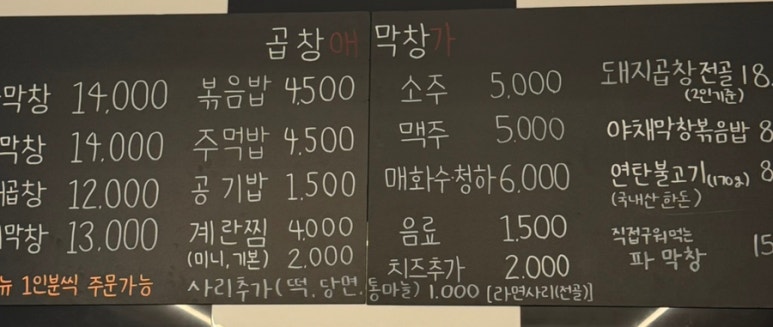 곱창애 막창가
막창 14,000
막창 14,000
곱창 12,000
막창 13,000
1인분씩 주문가능
볶음밥 4,500
주먹밥 4,500
공기밥 1,500
계란찜 4,000
(미니, 기본) 2,000
사리추가 (떡, 당면, 통마늘) 1,000 [라면사리(전골)]
소주 5,000
맥주 5,000
매화수·청하 6,000
음료 1,500
치즈추가 2,000
돼지곱창전골 18,
(2인기준)
야채막창볶음밥 8
연탄불고기(170g) 8
(국내산 한돈)
직접구워먹는
파 막창 15